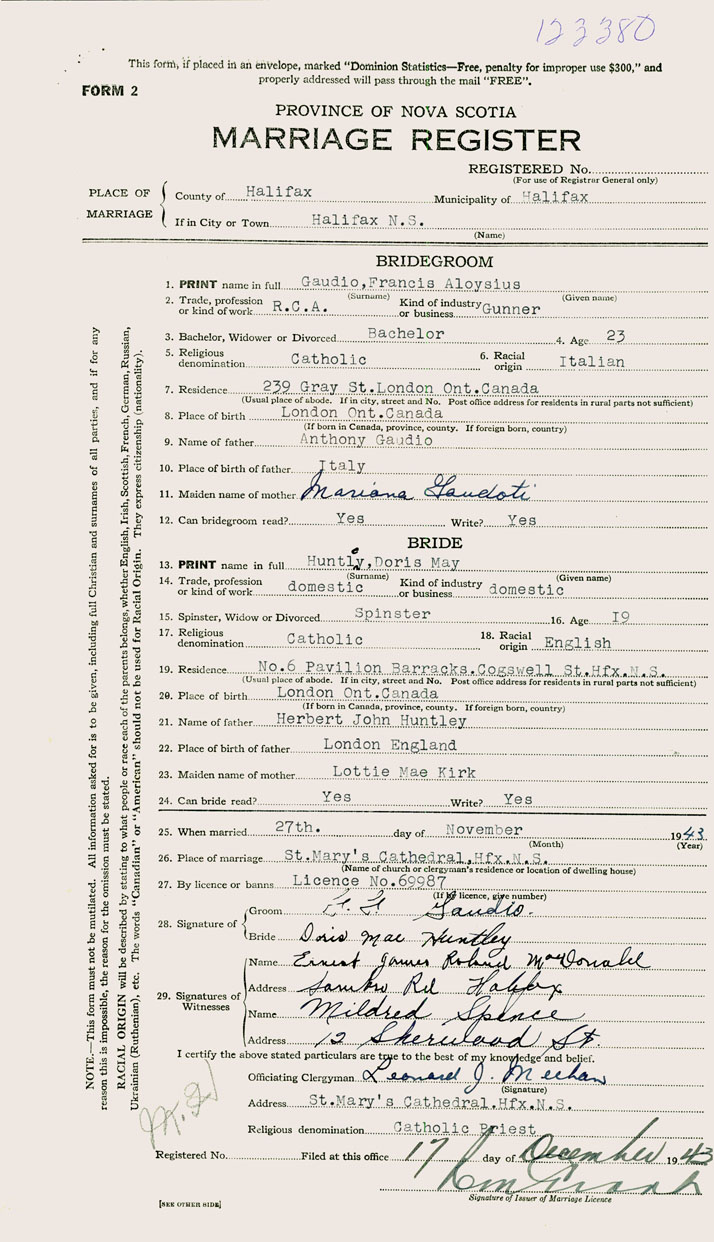 123380
This form, if placed in an envelope, marked "Dominion Statistics—Free, penalty for improper use $300," and
properly addressed will pass through the mail "FREE".
FORM 2
PROVINCE OF NOVA SCOTIA
MARRIAGE REGISTER
REGISTERED No.
(For use of Registrar General only)
PLACE OF MARRIAGE
County of Halifax Municipality of Halifax
If in City or Town Halifax N.S.
(Name)
BRIDEGROOM
1. PRINT name in full Gaudio,Francis Aloysius
(Surname) (Given name)
2. Trade, profession or kind of work R.C.A. Kind of industry or business Gunner
3. Bachelor, Widower or Divorced Bachelor 4. Age 23
5. Religious denomination Catholic 6. Racial origin Italian
7. Residence 239 Gray St.London Ont.Canada
(Usual place of abode. If in city, street and No. Post office address for residents in rural parts not sufficient)
8. Place of birth London Ont.Canada
(If born in Canada, province, county. If foreign born, country)
9. Name of father Anthony Gaudio
10. Place of birth of father Italy
11. Maiden name of mother Mariana Gaudoti
12. Can bridegroom read? Yes Write? Yes
BRIDE
13. PRINT name in full Huntly,Doris May
(Surname) (Given name)
14. Trade, profession or kind of work domestic Kind of industry or business domestic
15. Spinster, Widow or Divorced Spinster 16. Age I9
17. Religious denomination Catholic 18. Racial origin English
19. Residence No.6 Pavilion Barracks.Cogswell St.Hfx.N.S.
(Usual place of abode. If in city, street and No. Post office address for residents in rural parts not sufficient)
20. Place of birth London Ont.Canada
(If born in Canada, province, county. If foreign born, country)
21. Name of father Herbert John Huntley
22. Place of birth of father London England
23. Maiden name of mother Lottie Mae Kirk
24. Can bride read? Yes Write? Yes
25. When married 27th. day of November 1943
(Month) (Year)
26. Place of marriage St.Mary's Cathedral,Hfx.N.S.
(Name of church or clergyman's residence or location of dwelling house)
27. By licence or banns Licence No.69987
(If by licence, give number)
28. Signature of
Groom Gaudio.
Bride Doris Mae Huntley
29. Signatures of Witnesses
Name Ernest James Roland MacDonald
Address Sambro Rd Halifax
Name Mildred Spence
Address 12 Sherwood St
I certify the above stated particulars are true to the best of my knowledge and belief.
Officiating Clergyman Leonard J. Meehan
(Signature)
Address St.Mary's Cathedral.Hfx.N.S.
Religious denomination Catholic Priest
Registered No. Filed at this office 17 day of December 1943
Signature of Issuer of Marriage Licence
[SEE OTHER SIDE]
NOTE.—This form must not be mutilated. All information asked for is to be given, including full Christian and surnames of all parties, and if for any
reason this is impossible, the reason for the omission must be stated.
RACIAL ORIGIN will be described by stating to what people or race each of the parents belongs, whether English, Irish, Scottish, French, German, Russian,
Ukrainian (Ruthenian), etc. The words "Canadian" or "American" should not be used for Racial Origin. They express citizenship (nationality).